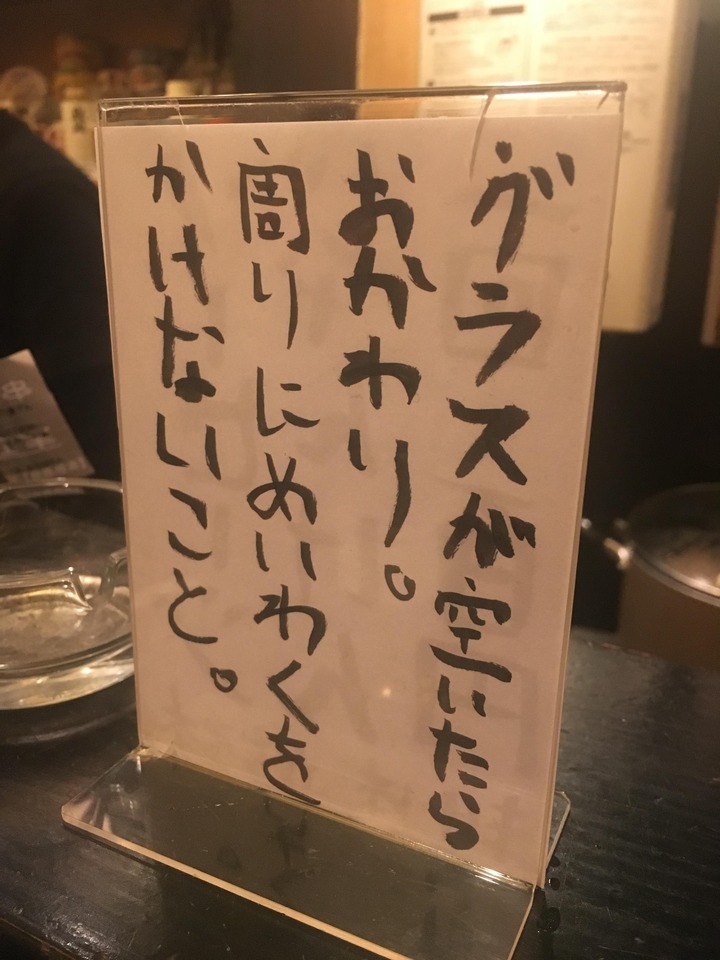 グラスが空いたら
おかわり。
周りにめいわくを
かけないこと。